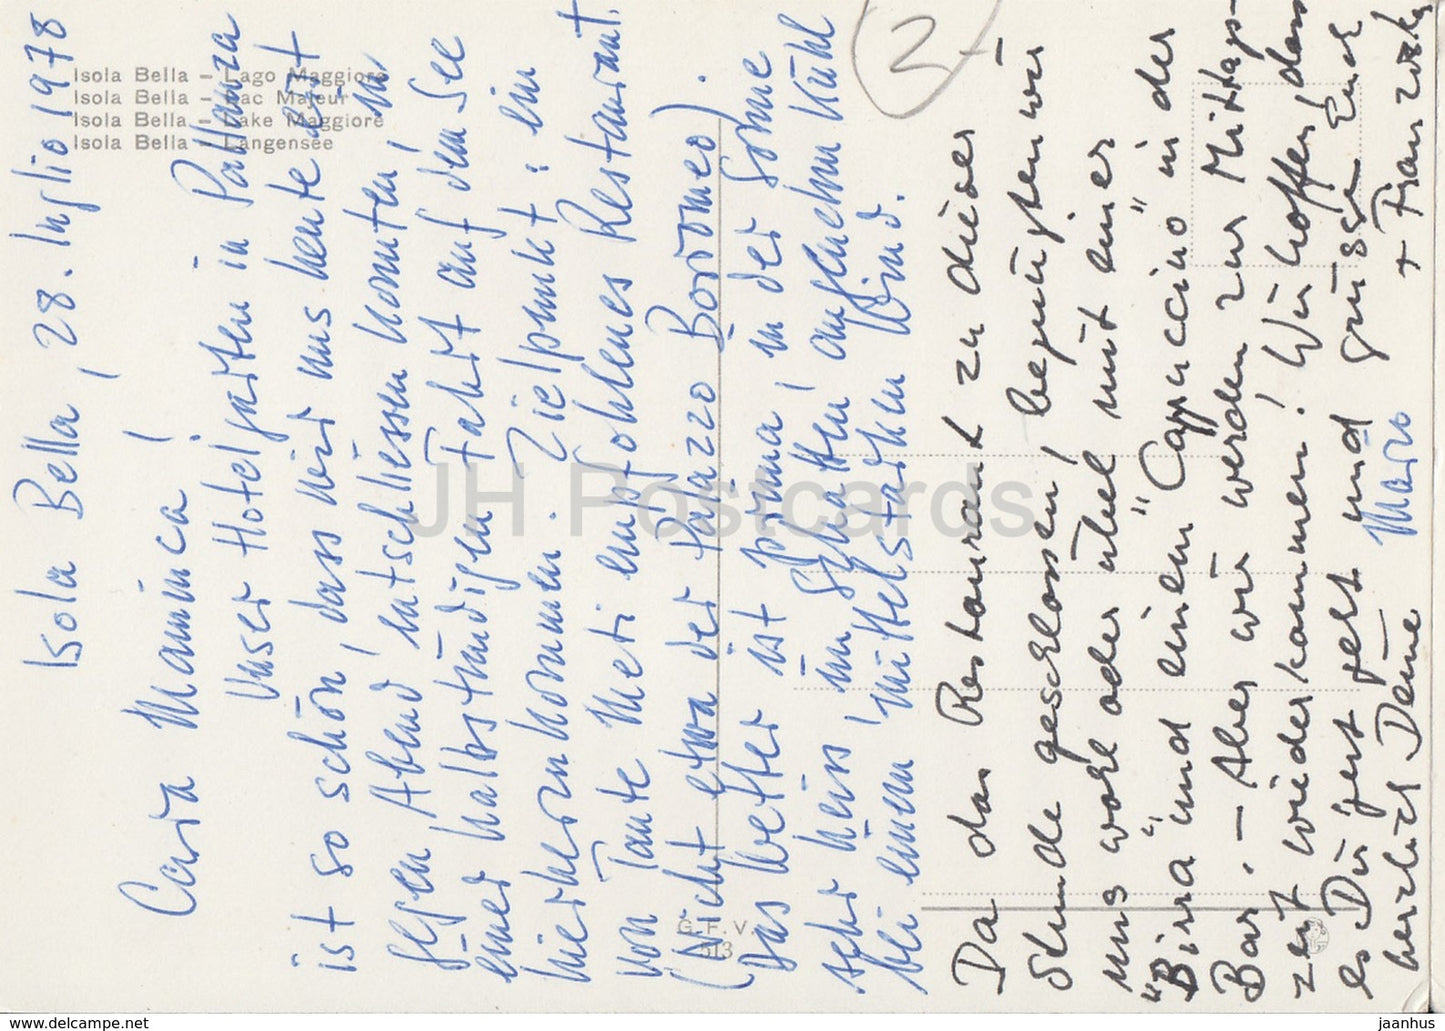 Isola Bella – Lago Maggiore
Isola Bella – Lac Majeur
Isola Bella – Lake Maggiore
Isola Bella – Langensee
Isola Bella, 28. luglio 1978
Cara Mamina!
Unser Hotelgarten in Pallanza
ist so schön, dass wir uns heute erst
gegen Abend entschliessen konnten, zu
einer halbstündigen Fahrt auf dem See
hierherzukommen. Zielpunkt: ein
von Tante Meti empfohlenes Restaurant.
(Nicht etwa der Palazzo Borromeo).
Das Wetter ist prima, in der Sonne
sehr heiss, im Schatten angenehm kühl
bei einem mittelstarken Wind.
Da das Restaurant zu dieser
Stunde geschlossen, begnügten wir
uns wohl oder übel mit einer
"Birra" und einem "Cappuccino" in der
Bar. – Aber wir werden zur Mittags-
zeit wiederkommen! Wir hoffen, dass
es Dir gut geht und grüssen Euch
herzlich Deine
Mario
+ Franziska
2
G.F.V.
513
JH Postcards
www.delcampe.net
jaanhus